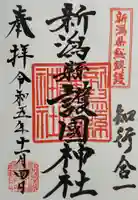 新潟県総鎮護
知行合一
新潟縣護國神社
奉拝 令和五年十月四日